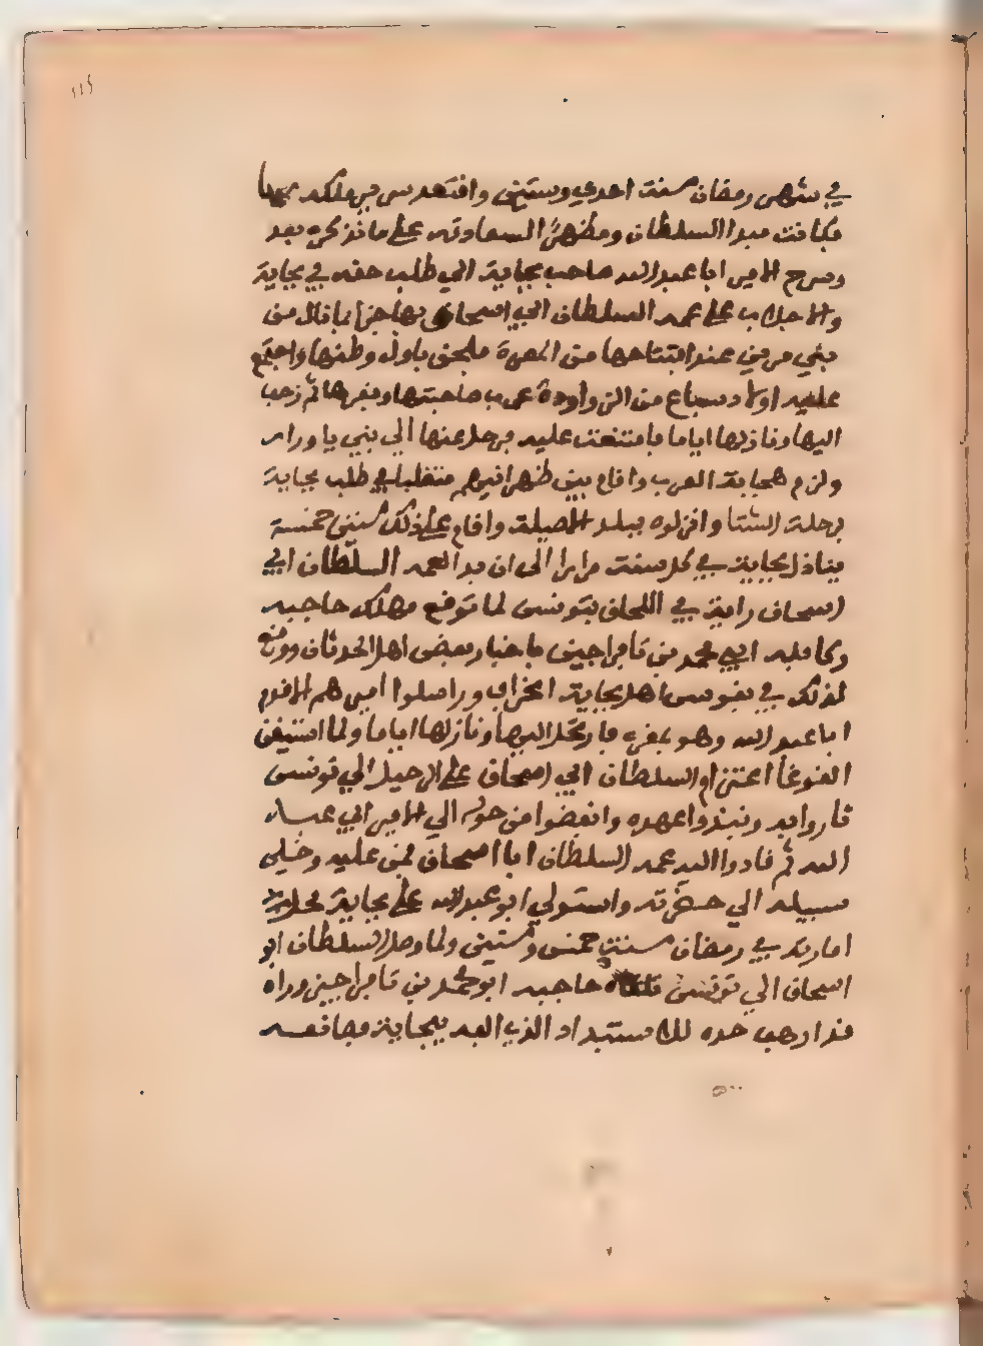 في شهر رمضان سنت احدي وستين وافتعد سرير ملكه بها
فكانت مبدا السلطان ومظهر السعادة على ما نذكره بعد
وسرح الامير ابا عبد الله صاحب بجاية الي طلب حقه في بجاية
والاجلاب على عمه السلطان ابي اسحاق بها جزا بما قال من
بني مرين عند افتتاحها من المرة فلحق باول وطنها واجتمع
عليه اولاد سباع من الزواودة عرب ضاحيتها وقفرها ثم زحف
اليها ونازلها اياما فامتنعت عليه فرحل عنها الي بني ياورار
ولزم صحابة العرب واقام بين ظهرانيهم متقلبا في طلب بجاية
برحلة الشتا وانزلوه ببلد المسيلة واقام على ذلك سنين خمسة
ينازل بجاية في كل سنت مرارا الى ان بدا لعمه السلطان ابي
اسحاق راية في اللحاق بتونس لما توقع مهلك حاجبه
وكافله ابي محمد بن تافراجين باخبار بعض اهل الحدثان ووقع
لذلك في نفوس اهل بجاية انحراف وراسلوا اميرهم الاقدم
ابا عبد الله وهو بمقره فارتحل اليها ونازلها اياما ولما استيقن
الغوغا اعتزام السلطان ابي اسحاق على الرحيل الي تونس
ثاروا به ونبذوا عهده وانفضوا من حوله الي الامير ابي عبد
الله ثم قادوا اليه عمه السلطان ابا اسحاق فمن عليه وخلى
سبيله الي حضرته واستولي ابو عبد الله على بجاية محل
امارته في رمضان سنت خمس وستين ولما وصل السلطان ابو
اسحاق الي تونس تلقاه حاجبه ابو محمد بن تافراجين وراه
قد ارهف حده للاستبداد الذي الفه ببجاية فصانعه